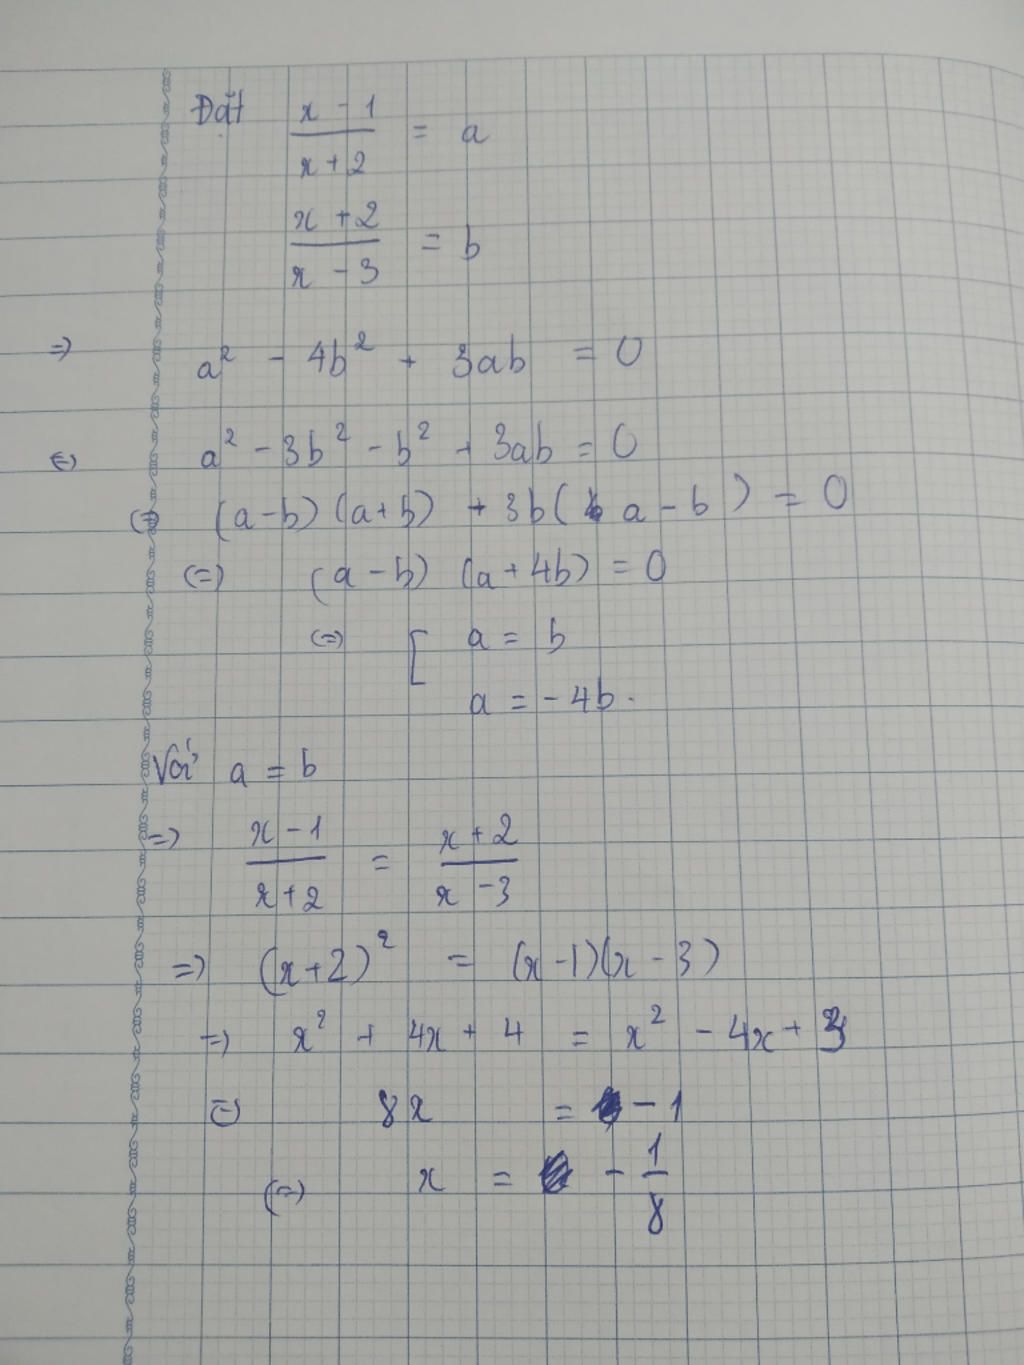 Đặt x - 1 / x + 2 = a
x + 2 / x - 3 = b
=> a² - 4b² + 3ab = 0
<=> a² - 3b² - b² + 3ab = 0
<=> (a - b) (a + b) + 3b ( a - b ) = 0
<=> (a - b) (a + 4b) = 0
<=> [ a = b
a = - 4b.
Với a = b
=> x - 1 / x + 2 = x + 2 / x - 3
=> (x + 2)² = (x - 1)(x - 3)
=> x² + 4x + 4 = x² - 4x + 3
<=> 8x = - 1
<=> x = - 1/8